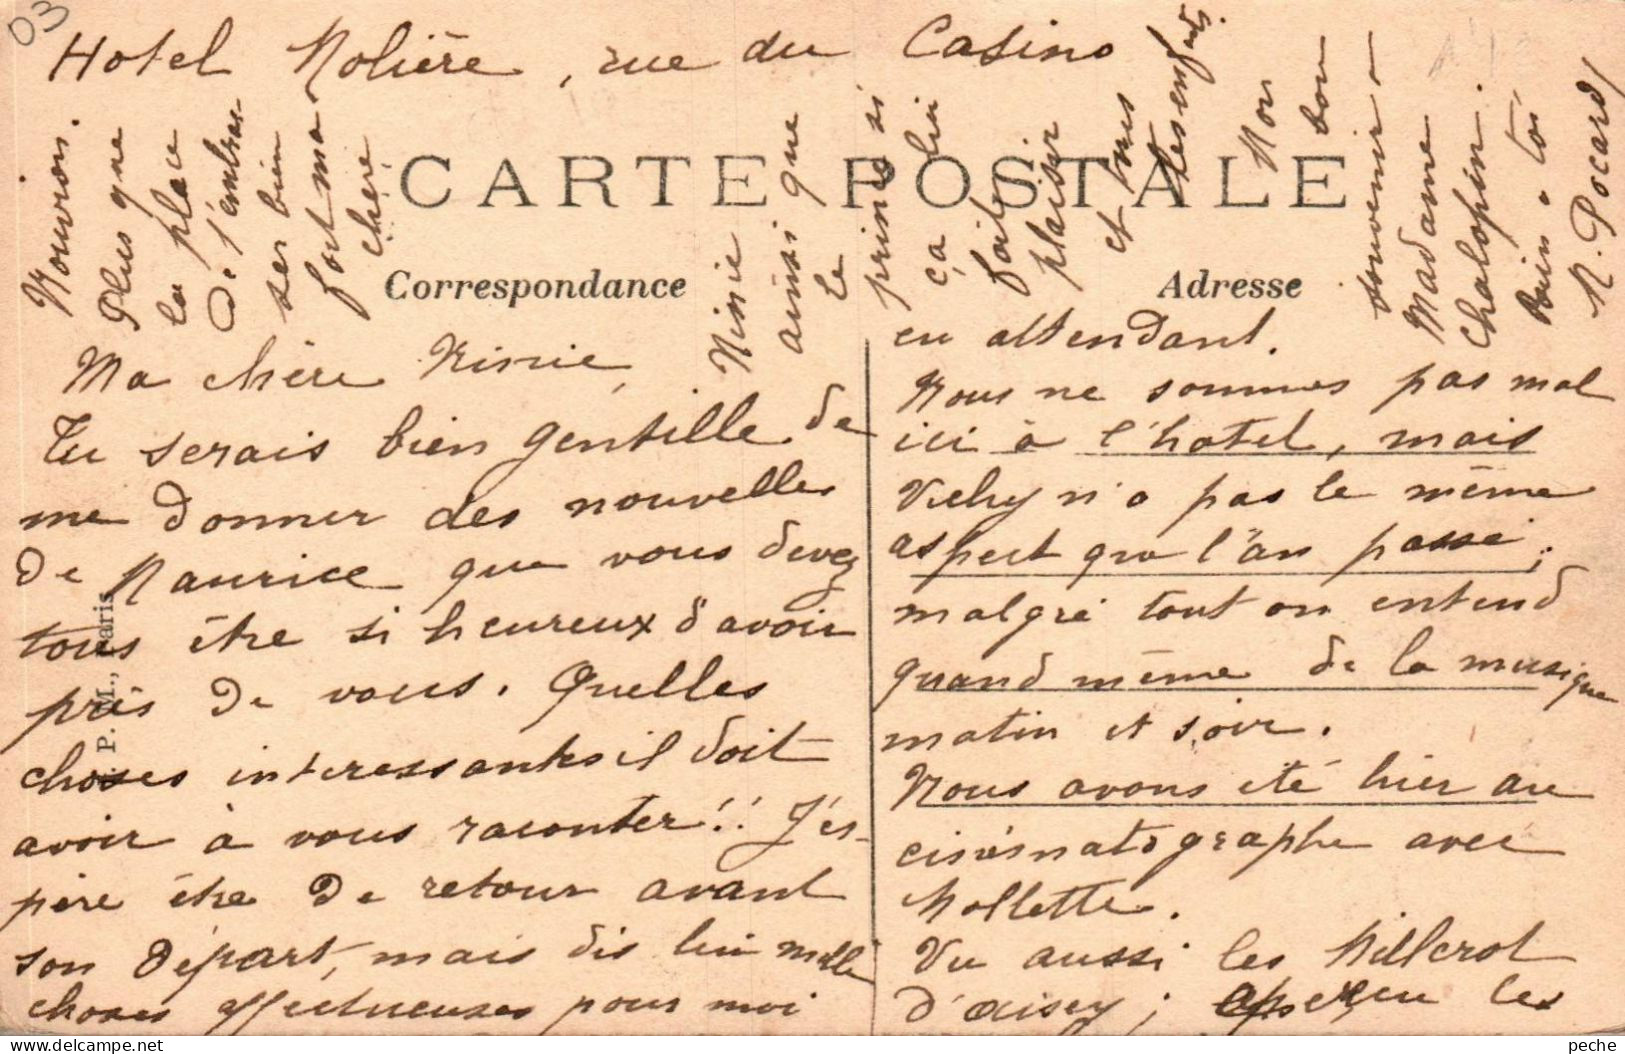 03
Hotel Molière, rue du Casino
CARTE POSTALE
Correspondance
Adresse
P. M., Paris
Ma chère Ninie,
Tu serais bien gentille de
me donner des nouvelles
de Maurice que vous devez
tous être si heureux d'avoir
près de vous. Quelles
choses interessantes il doit
avoir à vous raconter!! J'es-
père être de retour avant
son départ, mais dis lui mille
choses affectueuses pour moi
en attendant.
Nous ne sommes pas mal
ici à l'hotel, mais
Vichy n'a pas le même
aspect que l'an passé;
malgré tout on entend
quand même de la musique
matin et soir.
Nous avons été hier au
cinématographe avec
Mollette.
Vu aussi les Millerot
d'Aisey; aperçu les
Mouron.
Plus que
la place
de t'embras-
ser bien
fort ma
chère
Ninie
ainsi que
le
prince si
ça lui
fait
plaisir
et tous
les enfants.
Mon
bon
souvenir à
Madame
Chalopin.
à toi
N. Pocard